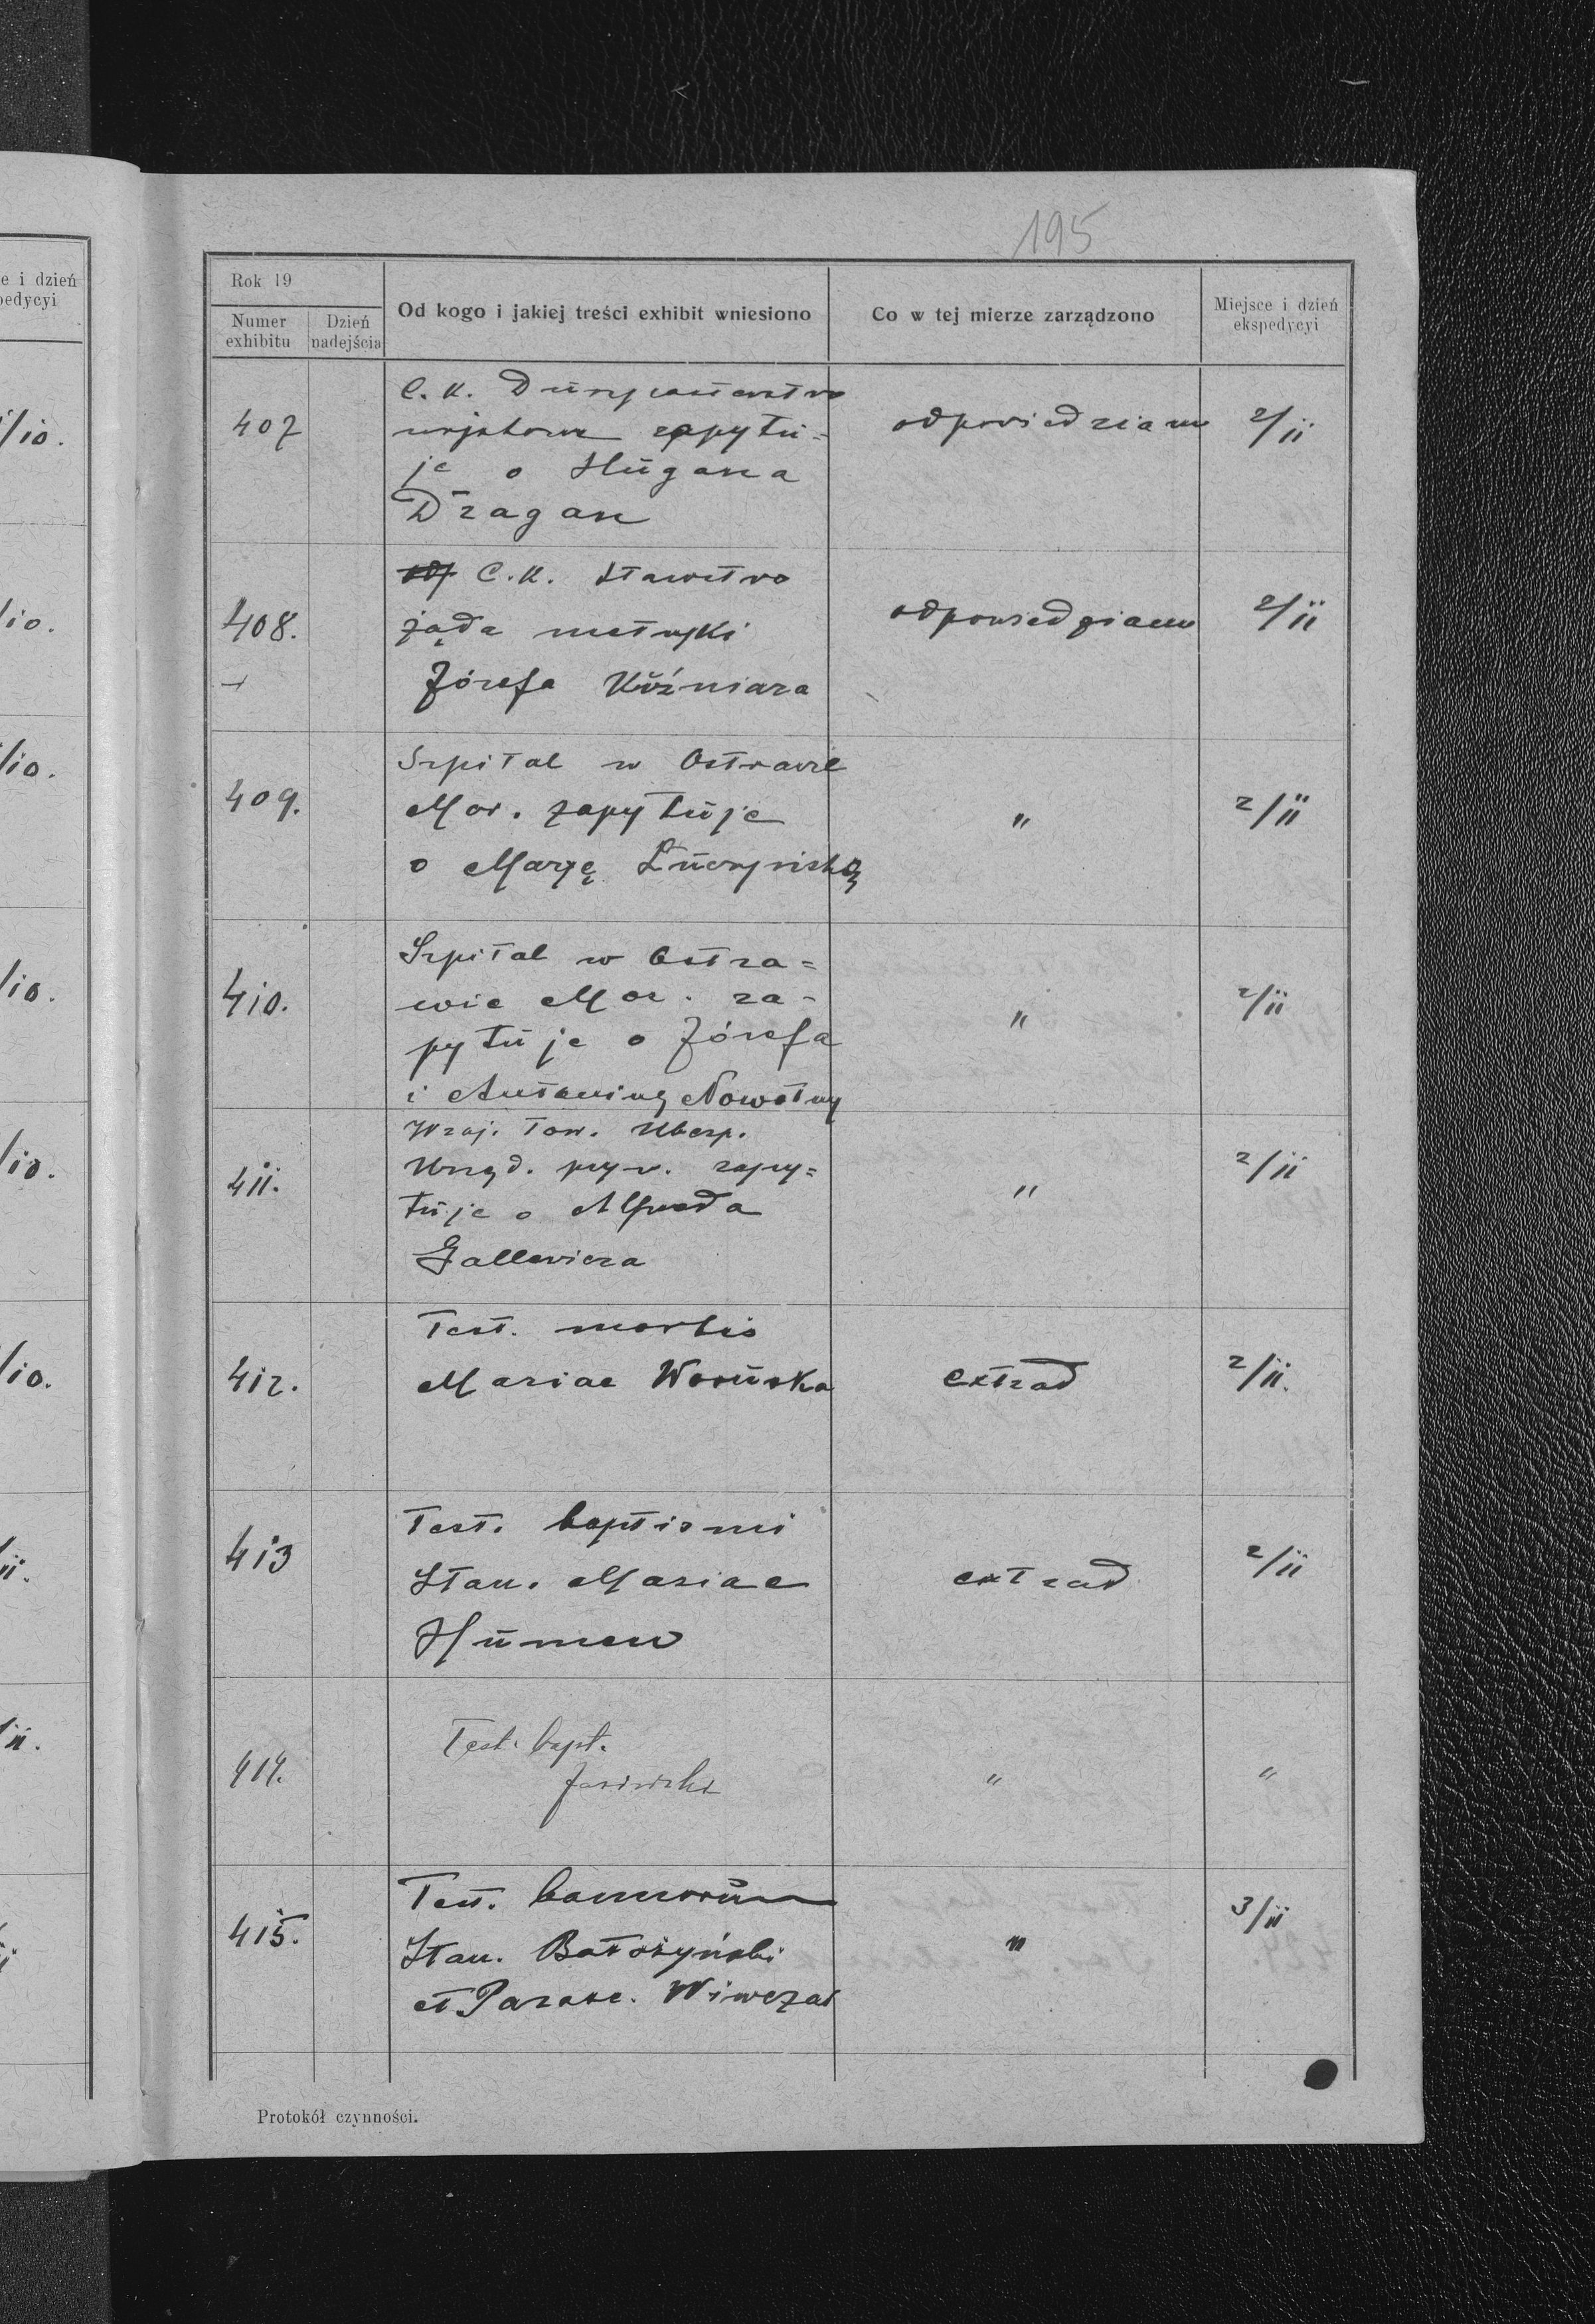 195
e i dzień
pedycyi
Rok 19
Numer exhibitu
Dzień nadejścia
Od kogo i jakiej treści exhibit wniesiono
Co w tej mierze zarządzono
Miejsce i dzień ekspedycyi
407
C. K. Duszpasterstwo
wojskowe zapytu=
je o
Dragan
odpowiedziano
2/11
408.
C.K. Starostwo
żąda metryki
Józefa Kuźniara
odpowiedziano
2/11
409.
Szpital w Ostrawie
Mor. zapytuje
o Maryę
"
2/11
410.
Szpital w Ostra=
wie Mor. za-
pytuje o Józefa
i Antoninę Nowotny
"
2/11
411.
Wzaj. Tow. Ubezp.
Urzęd. pryw. zapy=
tuje o Alfreda
Gallewicza
"
2/11
412.
Test. mortis
Mariae
extrad
2/11.
413
Test. baptismi
Stan. Mariae
Humen
extrad
2/11
414.
Test. bapt.
"
"
415.
Test. bannorum
Stan. Batożyński
et Parasc. Wiwczar
"
3/11
Protokół czynności.
/10.
/10.
/10.
/10.
/10.
/10.